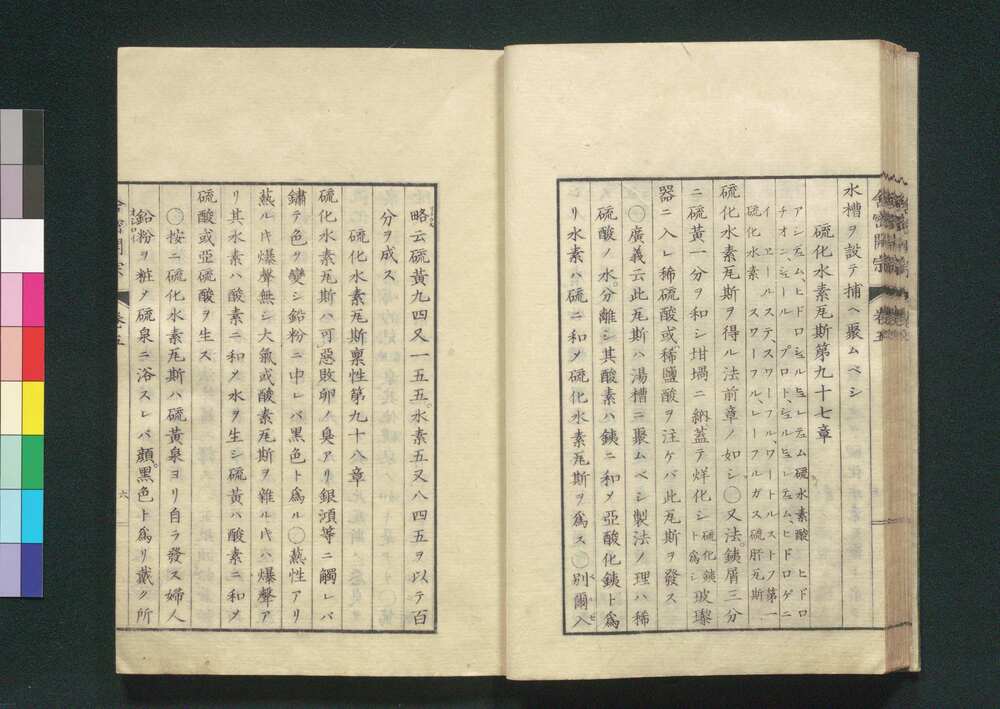 水槽ヲ設テ捕ヘ聚ムベシ
硫化水素瓦斯第九十七章
アシデム、ヒドロシュルヒュレデム 硫水素酸 ヒドロ
チオンシュール プロト、シュルヒュレデム、ヒドロゲニ
イ エールステ、スワーフル、ワートルストフ 第一
硫化水素 スワーフル、レーフルガス 硫肝瓦斯
硫化水素瓦斯ヲ得ル法前章ノ如シ○又法。銕屑三分
ニ硫黄一分ヲ和シ坩堝ニ納蓋テ烊化シ 硫化銕トナル 玻瓈
器ニ入レ稀硫酸或稀鹽酸ヲ注ケバ此瓦斯ヲ發ス
○廣義云此瓦斯ハ湯槽ニ聚ムベシ製法ノ理ハ稀
硫酸ノ水。分離シ其酸素ハ銕ニ和メ亞酸化銕ト爲
シリ水素ハ硫ニ和メ硫化水素瓦斯ヲ爲ス○別爾入
略云硫黄九四又一五五。水素五又八四五ヲ以テ百
分ヲ成ス
硫化水素瓦斯稟性第九十八章
硫化水素瓦斯ハ可惡敗卵ノ臭アリ銀澒等ニ觸レバ
鏽テ色ヲ變シ鉛粉ニ中レバ黑色ト爲ル○燕性アリ
爇ルトキ爆聲無シ大氣或酸素瓦斯ヲ雜ルトキハ爆聲ア
リ其水素ハ酸素ニ和メ水ヲ生シ硫黄ハ酸素ニ和メ
硫酸或亞硫酸ヲ生ス
○按ニ硫化水素瓦斯ハ硫黄泉ヨリ自ラ發ス婦人
鉛粉ヲ粧メ硫泉ニ浴スレバ顔。黑色ト爲リ戴ク所
六